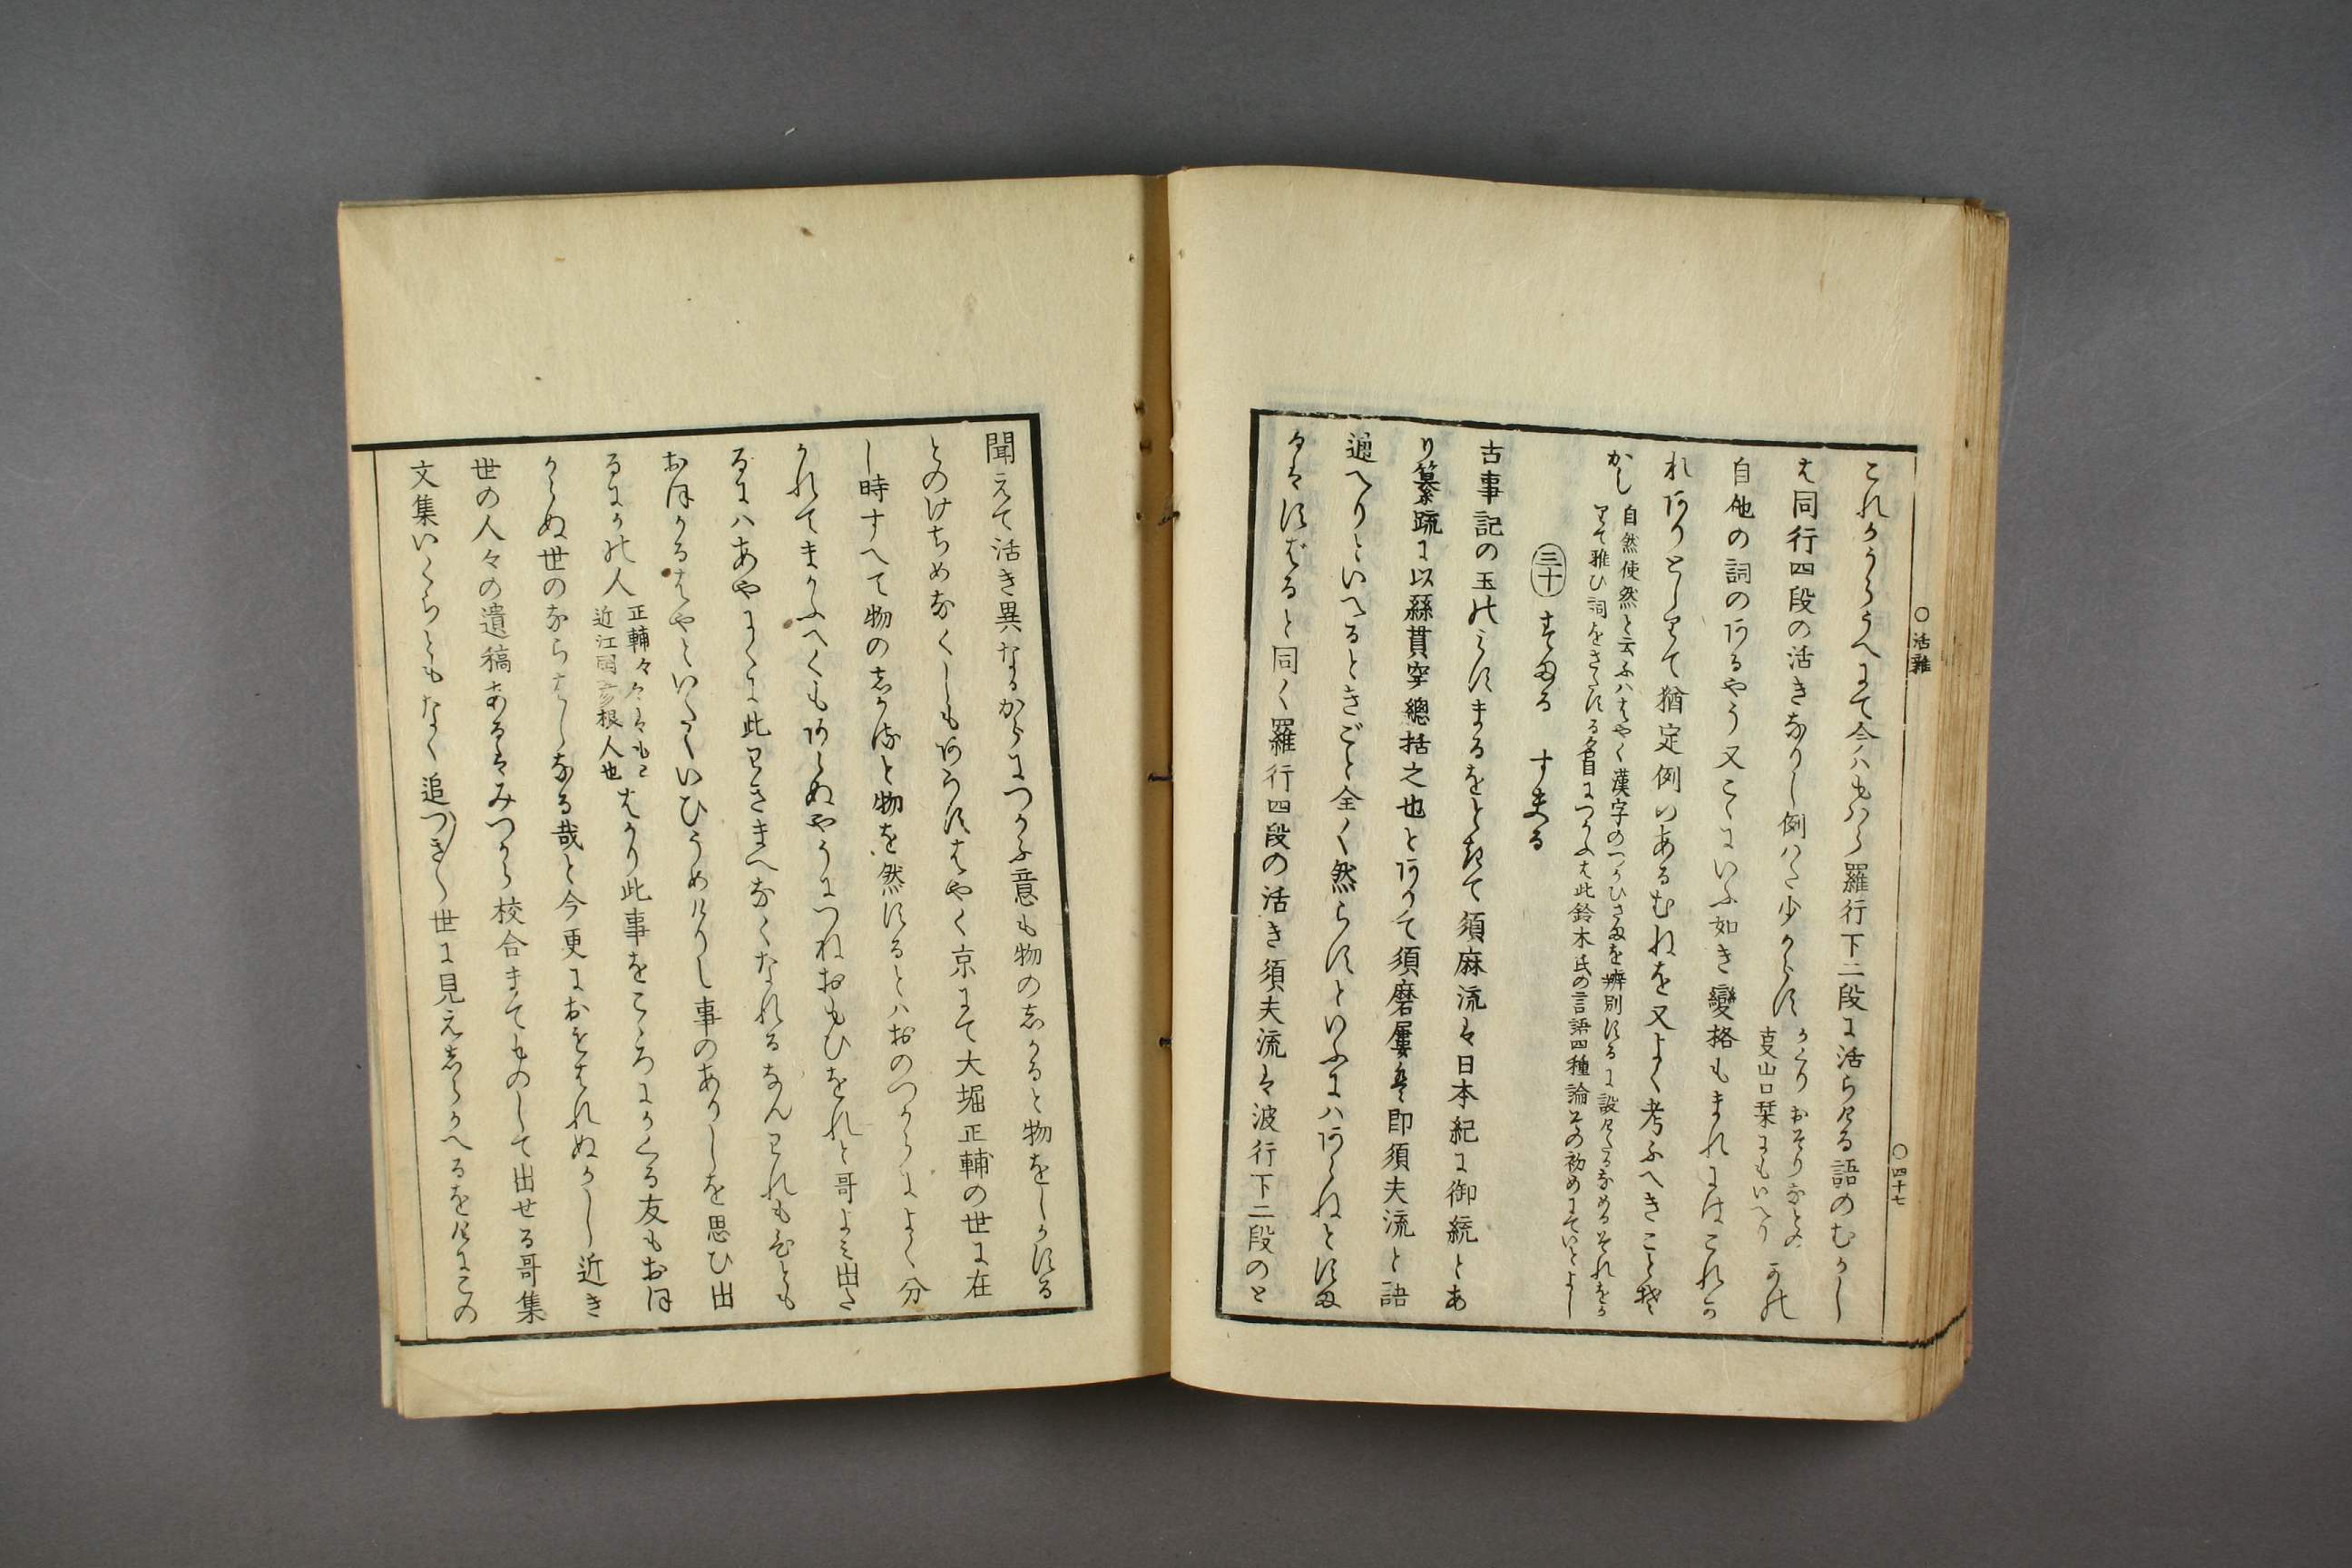 〇活雜
〇四十七
これらうへにて今ハもはら羅行下二段に活らける語のむかし
は同行四段の活きなりし例いと少からす
かくり おそりなとの
支山口栞にもいへり
かの
自他の詞のあるやう又こゝにいふ如き變格もまれにはこれか
れありとしりて猶定例のあるむねを又よく考ふへきことそ
かし
自然使然と云ふハはやく漢字のつかひさまを辨別するに設けたるなめるそれをか
りそ雅ひ詞をさたする名目につかふは此鈴木氏の言語四種論その初めにていとよし
三十 すまる すまる
古事記の玉のみすまるをときて須麻流は日本紀に御統とあ
り纂疏に以縣貫穿總括之也とありて須磨屢は即須夫流と語
通へりといへるときごと全く然らすといふにハあらねとすま
るはすばると同く羅行四段の活き須夫流は波行下二段のと
聞えて活き異なるからにつかふ意も物のしかると物をしかする
とのけちめなくしもあらすはやく京にて大堀正輔の世に在
し時すへて物のしかると物を然するとハおのつからによく分
かれてまかふへくもあらぬやうにつねおもひをれと哥よみ出さ
るにハあやにくに此わきまへなくなれるなんわれも人も
おほかるはやといたくいひうめけりし事のありしを思ひ出
るにかの人
正輔々々はもと
近江国彦根人也
はかり此事をこゝろにかくる友もおほ
からぬ世のならはしなる哉と今更におもはれぬかし近き
世の人々の遺稿あるはみつから校合まてものして出せる哥集
文集いくらともなく追つき〱世に見えしらかへるを見にこの